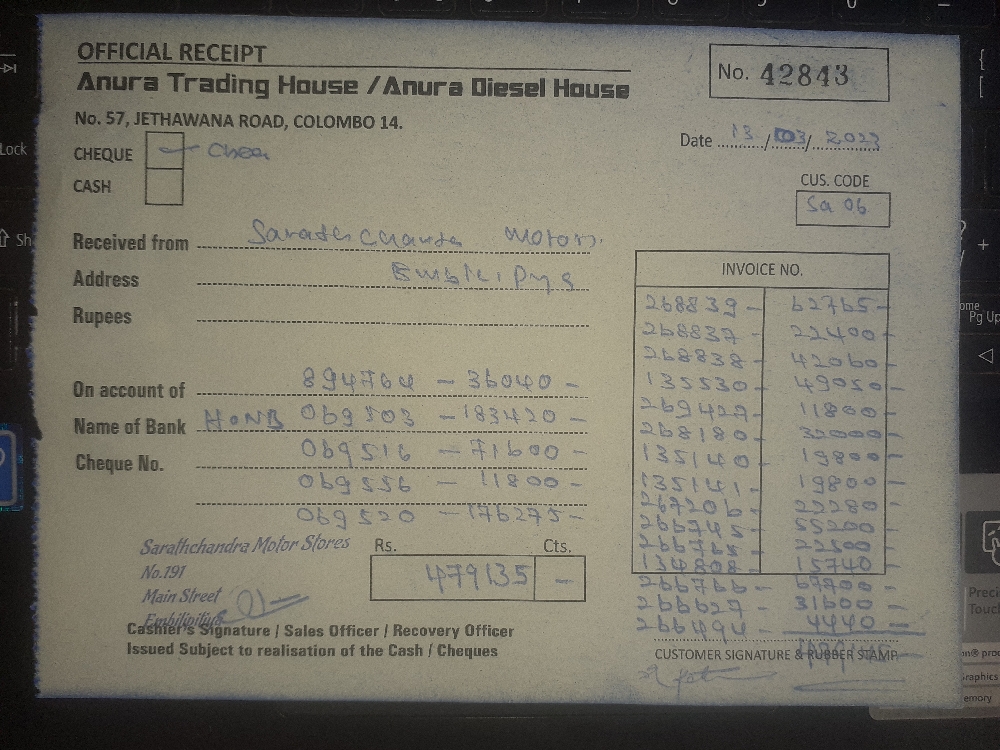 OFFICIAL RECEIPT
Anura Trading House / Anura Diesel House
No. 42843
No. 57, JETHAWANA ROAD, COLOMBO 14.
Date 13/03/2023
CHEQUE
CASH
CUS. CODE
Sa 06
Received from Sarathchanda Motors
Address
Rupees
On account of 894764 - 36040 -
Name of Bank 069503 - 183420 -
Cheque No. 069516 - 71600 -
069556 - 11800 -
069520 - 176275 -
INVOICE NO.
268839 - 62765 -
268837 - 22400 -
268838 - 42060 -
135530 - 49050 -
269429 - 11800 -
268180 - 32000 -
135140 - 19800 -
135141 - 19800 -
267206 - 22280 -
266745 - 55200 -
22500 -
134808 - 15740 -
266766 - 67700 -
266627 - 31600 -
266494 - 4440 -
Sarathchandra Motor Stores
No.191
Main Street
Embilipitiya
Rs. Cts.
479135 -
Cashier's Signature / Sales Officer / Recovery Officer
Issued Subject to realisation of the Cash / Cheques
CUSTOMER SIGNATURE & RUBBER STAMP